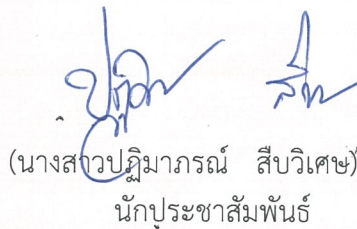 (นางสาวปฏิมาภรณ์ สืบวิเศษ)
นักประชาสัมพันธ์